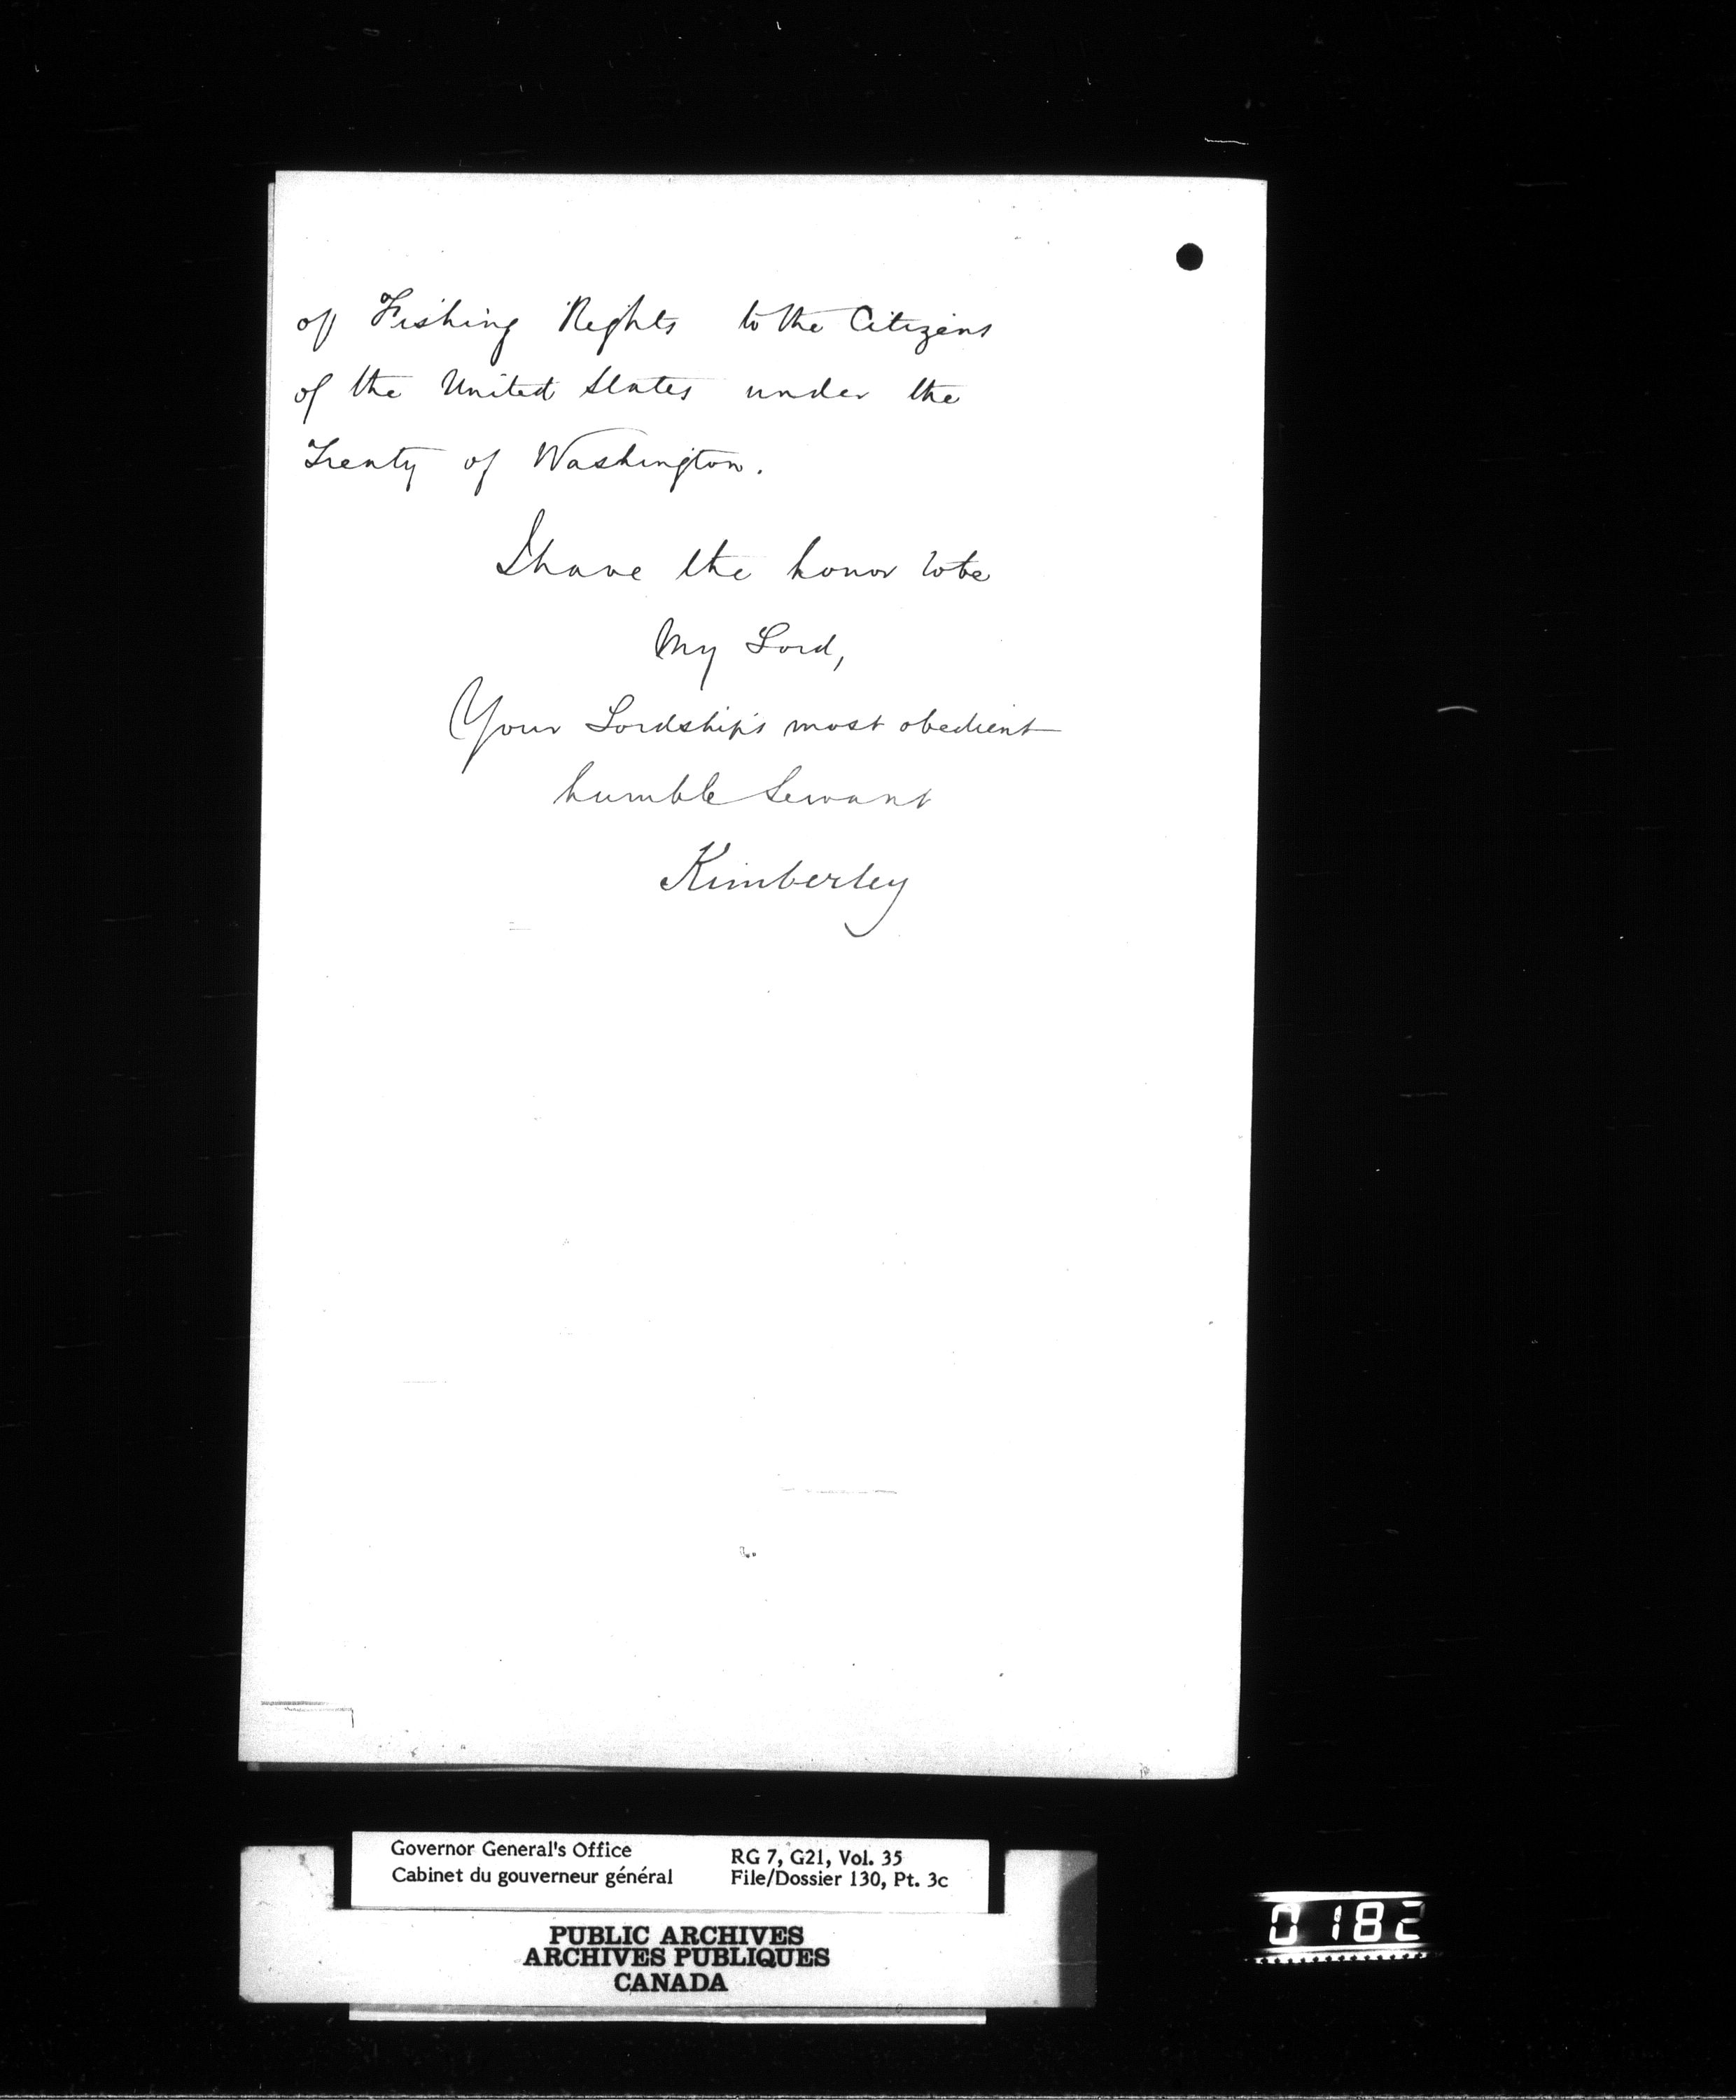 of Fishing Rights to the Citizens
of the United States under the
Treaty of Washington.
I have the honor to be
My Lord,
Your Lordship's most obedient
humble Servant
Kimberley
Governor General's Office
Cabinet du gouverneur général
RG 7, G21, Vol. 35
File/Dossier 130, Pt. 3c
PUBLIC ARCHIVES
ARCHIVES PUBLIQUES
CANADA
0182